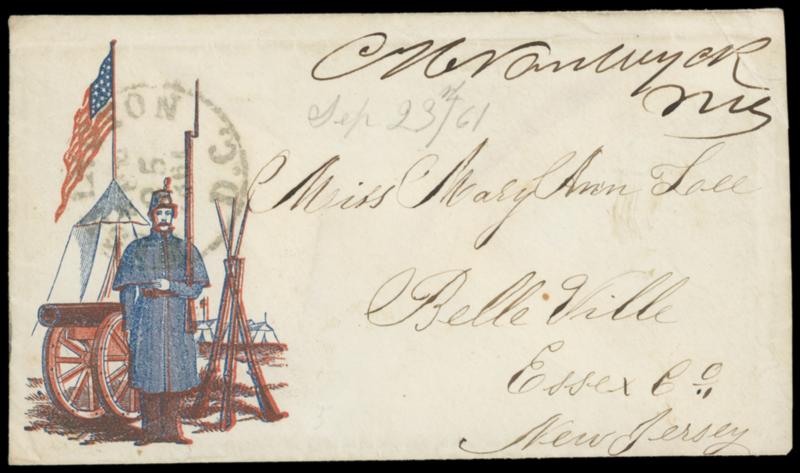 C H Van Wyck
MC
Sep 23rd/61
Miss Mary Ann
Belle Ville
Essex Co
New Jersey
TON D.C.
25